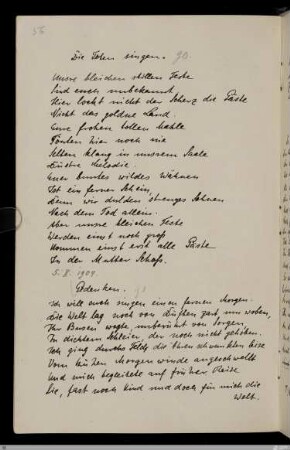 56
Die Toten singen. 90
Unsre bleichen stillen Feste
Sind euch unbekannt,
Hier lockt nicht der Scherz die Gäste
Nicht das goldne Land.
Eure frohen tollen Mahle
Tönten hier noch nie
Selten klang in unsrem Saale
Düstre Melodie.
Euer buntes wildes Wähnen
Ist ein ferner Schein,
Denn wir dulden strenges Sehnen
Nach dem Tod allein.
Aber unsre bleichen Feste
Werden einst noch groß
Kommen einst erst alle Gäste
In der Mutter Schoß.
5. X. 1909.
Gedenken. 91
Ich will euch singen einen fernen Morgen.
Die Welt lag noch von Düften zart umwoben,
Ihr Busen wogte unberührt von Sorgen,
In dichtem Schleier der noch nicht gehoben.
Ich ging durchs Feld, die Ähren schwankten leise
Vom kühlen Morgenwinde angeschwellt
Und mich begleitete auf früher Reise
Sie, fast noch Kind und doch für mich die
Welt.